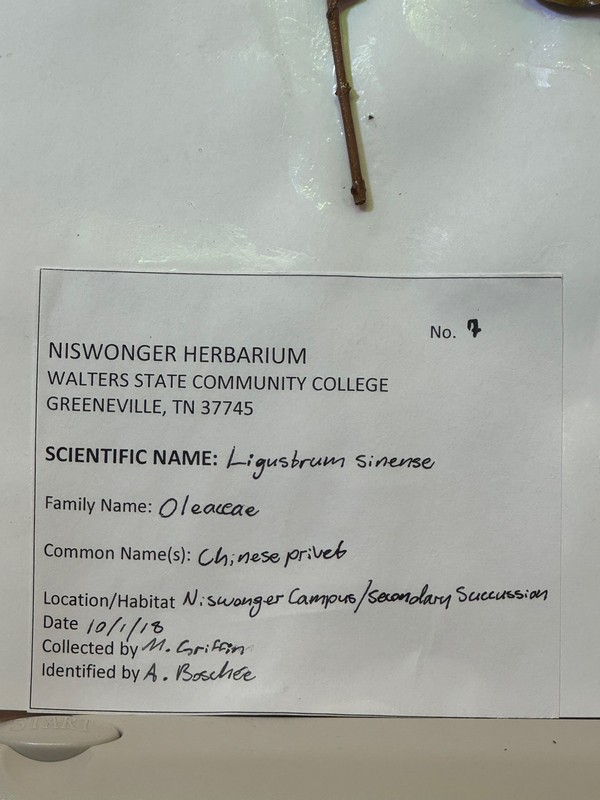 No. 7
NISWONGER HERBARIUM
WALTERS STATE COMMUNITY COLLEGE
GREENEVILLE, TN 37745
SCIENTIFIC NAME: Ligustrum sinense
Family Name: Oleaceae
Common Name(s): Chinese privet
Location/Habitat Niswonger Campus/Secondary Succussion
Date 10/1/18
Collected by M. Griffin
Identified by A. Boschée
START